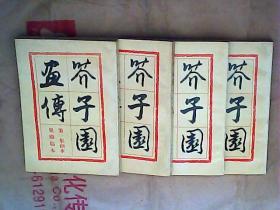 芥子園
畫傳
第一集山水
巢勳臨本
芥子園
芥子園
芥子園
化传
61291